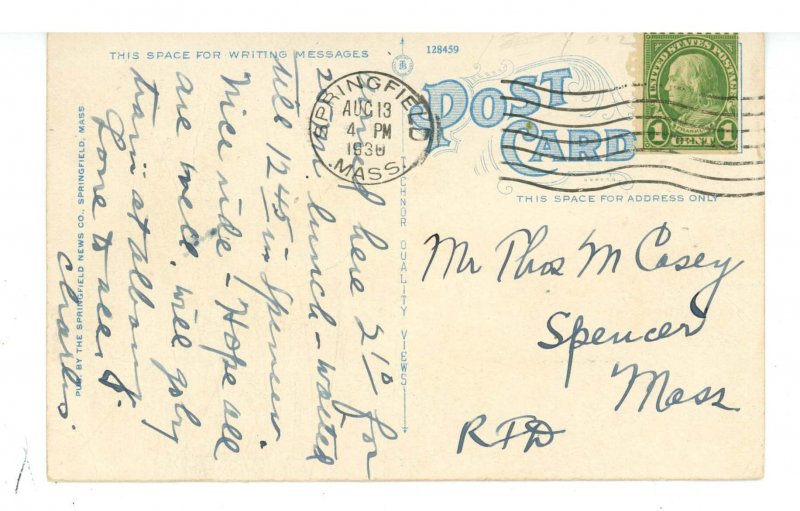 THIS SPACE FOR WRITING MESSAGES
128459
POST CARD
UNITED STATES POSTAGE
FRANKLIN
1 CENT 1
SPRINGFIELD
AUG 13
4 PM
1930
MASS.
THIS SPACE FOR ADDRESS ONLY
TECHNOR QUALITY VIEWS
PUB. BY THE SPRINGFIELD NEWS CO., SPRINGFIELD, MASS.
here 210 for
lunch - waited
till 1245 in Spencer
Nice ride - Hope all
are well. will go by
train at Albany
Love to all
Charles.
Mr Thos M Casey
Spencer
Mass
RFD